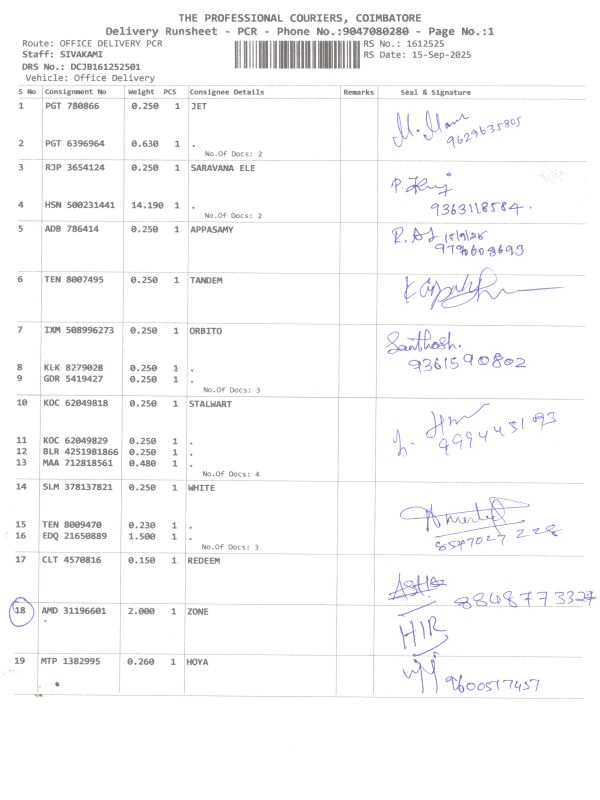 THE PROFESSIONAL COURIERS, COIMBATORE
Delivery Runsheet - PCR - Phone No.:9047080280 - Page No.:1
Route: OFFICE DELIVERY PCR RS No.: 1612525
Staff: SIVAKAMI RS Date: 15-Sep-2025
DRS No.: DCJB161252501
Vehicle: Office Delivery
S No Consignment No Weight PCS Consignee Details Remarks Seal & Signature
1 PGT 780866 0.250 1 JET
9629635805
2 PGT 6396964 0.630 1 .
No.Of Docs: 2
3 RJP 3654124 0.250 1 SARAVANA ELE
4 HSN 500231441 14.190 1 . 9363118584.
No.Of Docs: 2
5 ADB 786414 0.250 1 APPASAMY
15/9/25
6 TEN 8007495 0.250 1 TANDEM
7 IXM 508996273 0.250 1 ORBITO
Santhosh.
9361590802
8 KLK 8279028 0.250 1 .
9 GDR 5419427 0.250 1 .
No.Of Docs: 3
10 KOC 62049818 0.250 1 STALWART
999443193
11 KOC 62049829 0.250 1 .
12 BLR 4251981866 0.250 1 .
13 MAA 712818561 0.480 1 .
No.Of Docs: 4
14 SLM 378137821 0.250 1 WHITE
15 TEN 8009470 0.230 1 .
16 EDQ 21650889 1.500 1 . 8547027228
No.Of Docs: 3
17 CLT 4570816 0.150 1 REDEEM
8848773327
18 AMD 31196601 2.000 1 ZONE
HIR
19 MTP 1382995 0.260 1 HOYA
9600517457